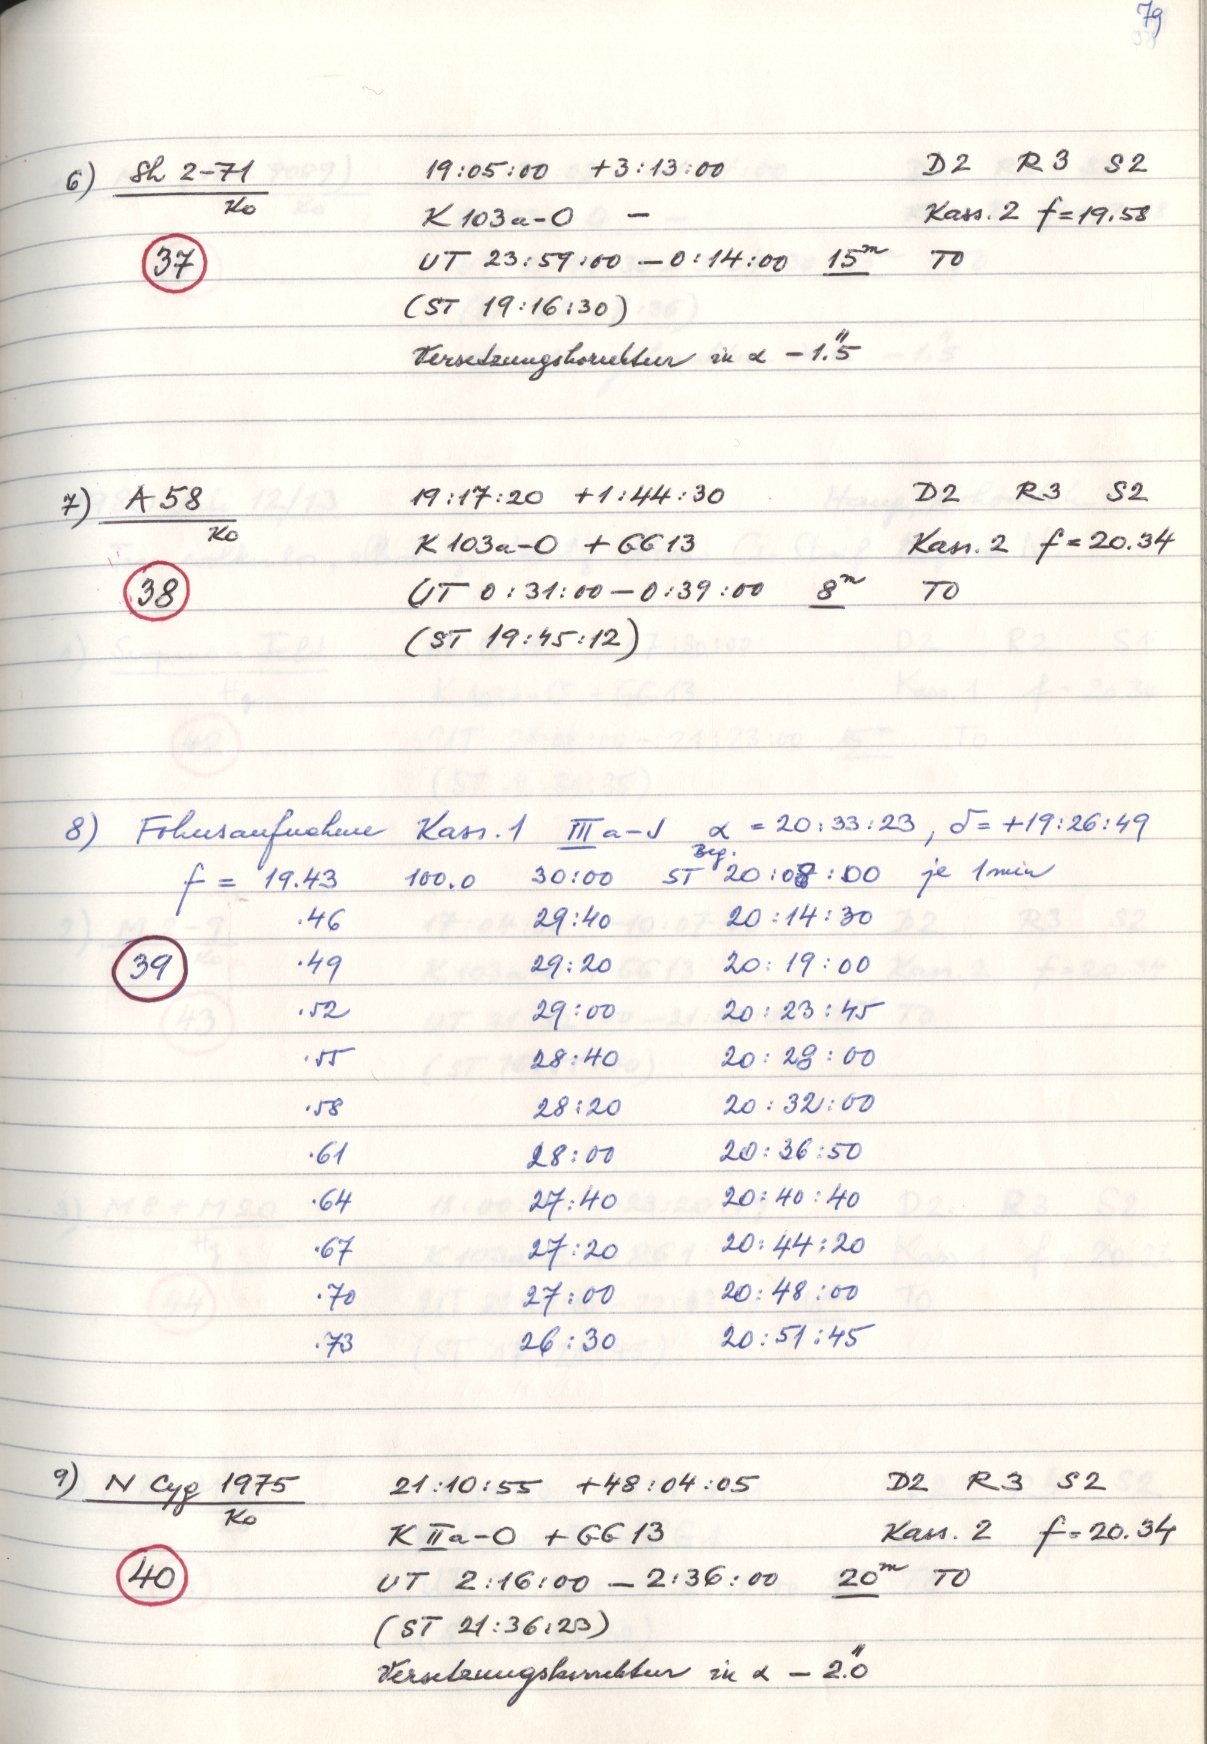 79
6) Sh 2-71 19:05:00 +3:13:00 D2 R3 S2
Ko K 103a-O – Kass. 2 f=19.58
37 UT 23:59:00 – 0:14:00 15m TO
(ST 19:16:30)
Versetzungskorrektur in α – 1."5
7) A 58 19:17:20 +1:44:30 D2 R3 S2
Ko K 103a-O + GG13 Kass. 2 f = 20.34
38 UT 0:31:00 – 0:39:00 8m TO
(ST 19:45:12)
8) Fokusaufnahme Kass. 1 IIIa-J α = 20:33:23, δ = +19:26:49
f = 19.43 100.0 30:00 Beg. ST 20:08:00 je 1min
.46 29:40 20:14:30
39 .49 29:20 20:19:00
.52 29:00 20:23:45
.55 28:40 20:28:00
.58 28:20 20:32:00
.61 28:00 20:36:50
.64 27:40 20:40:40
.67 27:20 20:44:20
.70 27:00 20:48:00
.73 26:30 20:51:45
9) N Cyg 1975 21:10:55 +48:04:05 D2 R3 S2
Ko K IIa-O + GG13 Kass. 2 f = 20.34
40 UT 2:16:00 – 2:36:00 20m TO
(ST 21:36:23)
Versetzungskorrektur in α – 2."0